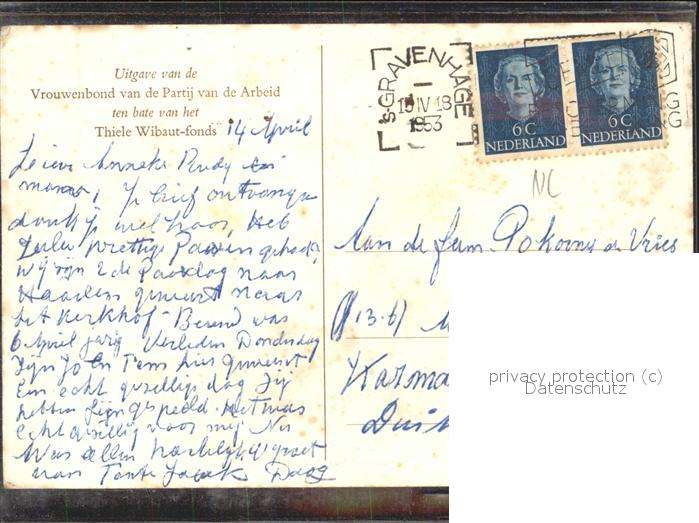 Uitgave van de
Vrouwenbond van de Partij van de Arbeid
ten bate van het
Thiele Wibaut-fonds
14 April
Lieve Anneke Rudy en
mama, Je brief ontvangen
dank je wel hoor, Heb
jullie prettige Paasen gehad,
wij zijn 2de Paasdag naar
Haarlem geweest naar
het Kerkhof. Berend was
6 April jarig Verleden Donderdag
zijn Jo en Tem hier geweest
Een echt gezellige dag Zij
hebben fijn gespeeld. Het was
echt gezellig voor mij Nu
allen hartelijk gegroet
van Tante Daag
'S GRAVENHAGE
15 IV 18
1953
6C
NEDERLAND
6C
NEDERLAND
NC
Aan de fam. Pokorny de Vries
(13.b)
Duits
privacy protection (c)
Datenschutz